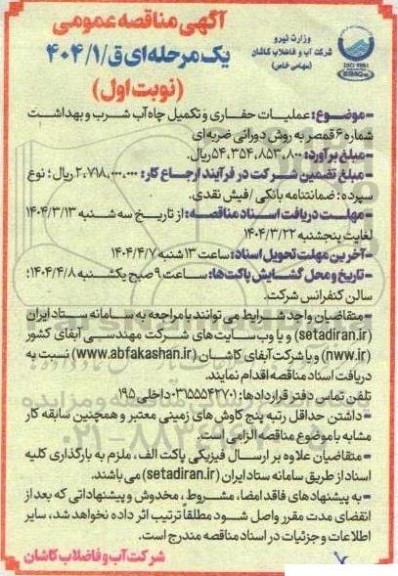 آگهی مناقصه عمومی
یک مرحله‌ای ق/۴۰۴/۱
(نوبت اول)
وزارت نیرو
شرکت آب و فاضلاب کاشان
(سهامی خاص)
-موضوع: عملیات حفاری و تکمیل چاه آب شرب و بهداشت
شماره ۶ قمصر به روش دورانی ضربه‌ای
-مبلغ برآورد: ۵۴,۳۵۴,۸۵۳,۸۰۰ ریال.
-مبلغ تضمین شرکت در فرآیند ارجاع کار: ۲,۷۱۸,۰۰۰,۰۰۰ ریال؛ نوع
سپرده: ضمانتنامه بانکی /فیش نقدی.
-مهلت دریافت اسناد مناقصه: از تاریخ سه شنبه ۱۴۰۴/۳/۱۳
لغایت پنجشنبه ۱۴۰۴/۳/۲۲
-آخرین مهلت تحویل اسناد: ساعت ۱۳ شنبه ۱۴۰۴/۴/۷
-تاریخ و محل گشایش پاکت‌ها: ساعت ۹ صبح یکشنبه ۱۴۰۴/۴/۸؛
سالن کنفرانس شرکت.
-متقاضیان واجد شرایط می توانند با مراجعه به سامانه ستاد ایران
(setadiran.ir) و یا وب سایت های شرکت مهندسی آبفای کشور
(nww.ir) و یا شرکت آبفای کاشان (www.abfakashan.ir) نسبت به
دریافت اسناد مناقصه اقدام نمایند.
تلفن تماس دفتر قراردادها: ۰۳۱۵۵۵۴۲۷۰۱ داخلی ۱۹۵
-داشتن حداقل رتبه پنج کاوش های زمینی معتبر و همچنین سابقه کار
مشابه با موضوع مناقصه الزامی است.
-متقاضیان علاوه بر ارسال فیزیکی پاکت الف، ملزم به بارگذاری کلیه
اسناد از طریق سامانه ستاد ایران (setadiran.ir) می باشند.
-به پیشنهادهای فاقد امضا، مشروط، مخدوش و پیشنهاداتی که بعد از
انقضای مدت مقرر واصل شود مطلقاً ترتیب اثر داده نخواهد شد، سایر
اطلاعات و جزئیات در اسناد مناقصه مندرج است.
شرکت آب و فاضلاب کاشان